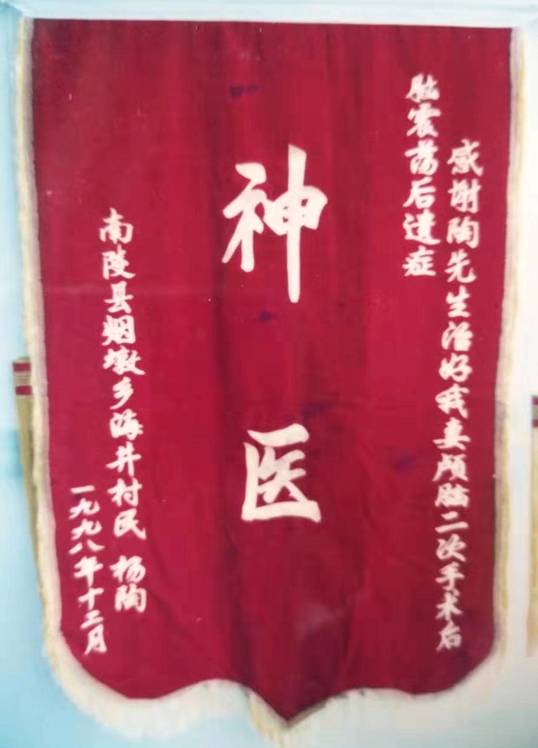 感谢陶先生治好我妻颅脑二次手术后
脑震荡后遗症
神医
南陵县烟墩乡海井村民 杨陶
一九九八年十二月